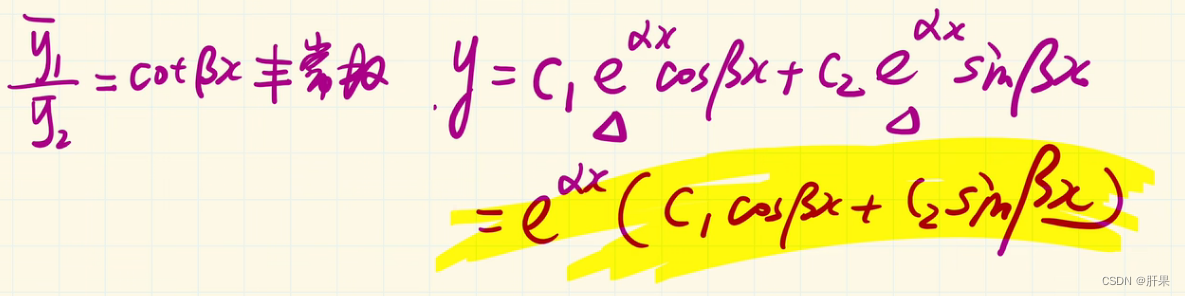 ȳ₁/ȳ₂ = cotβx ≢ 常数
y = C₁e^{αx}cosβx + C₂e^{αx}sinβx
= e^{αx}(C₁cosβx + C₂sinβx)
CSDN @肝果